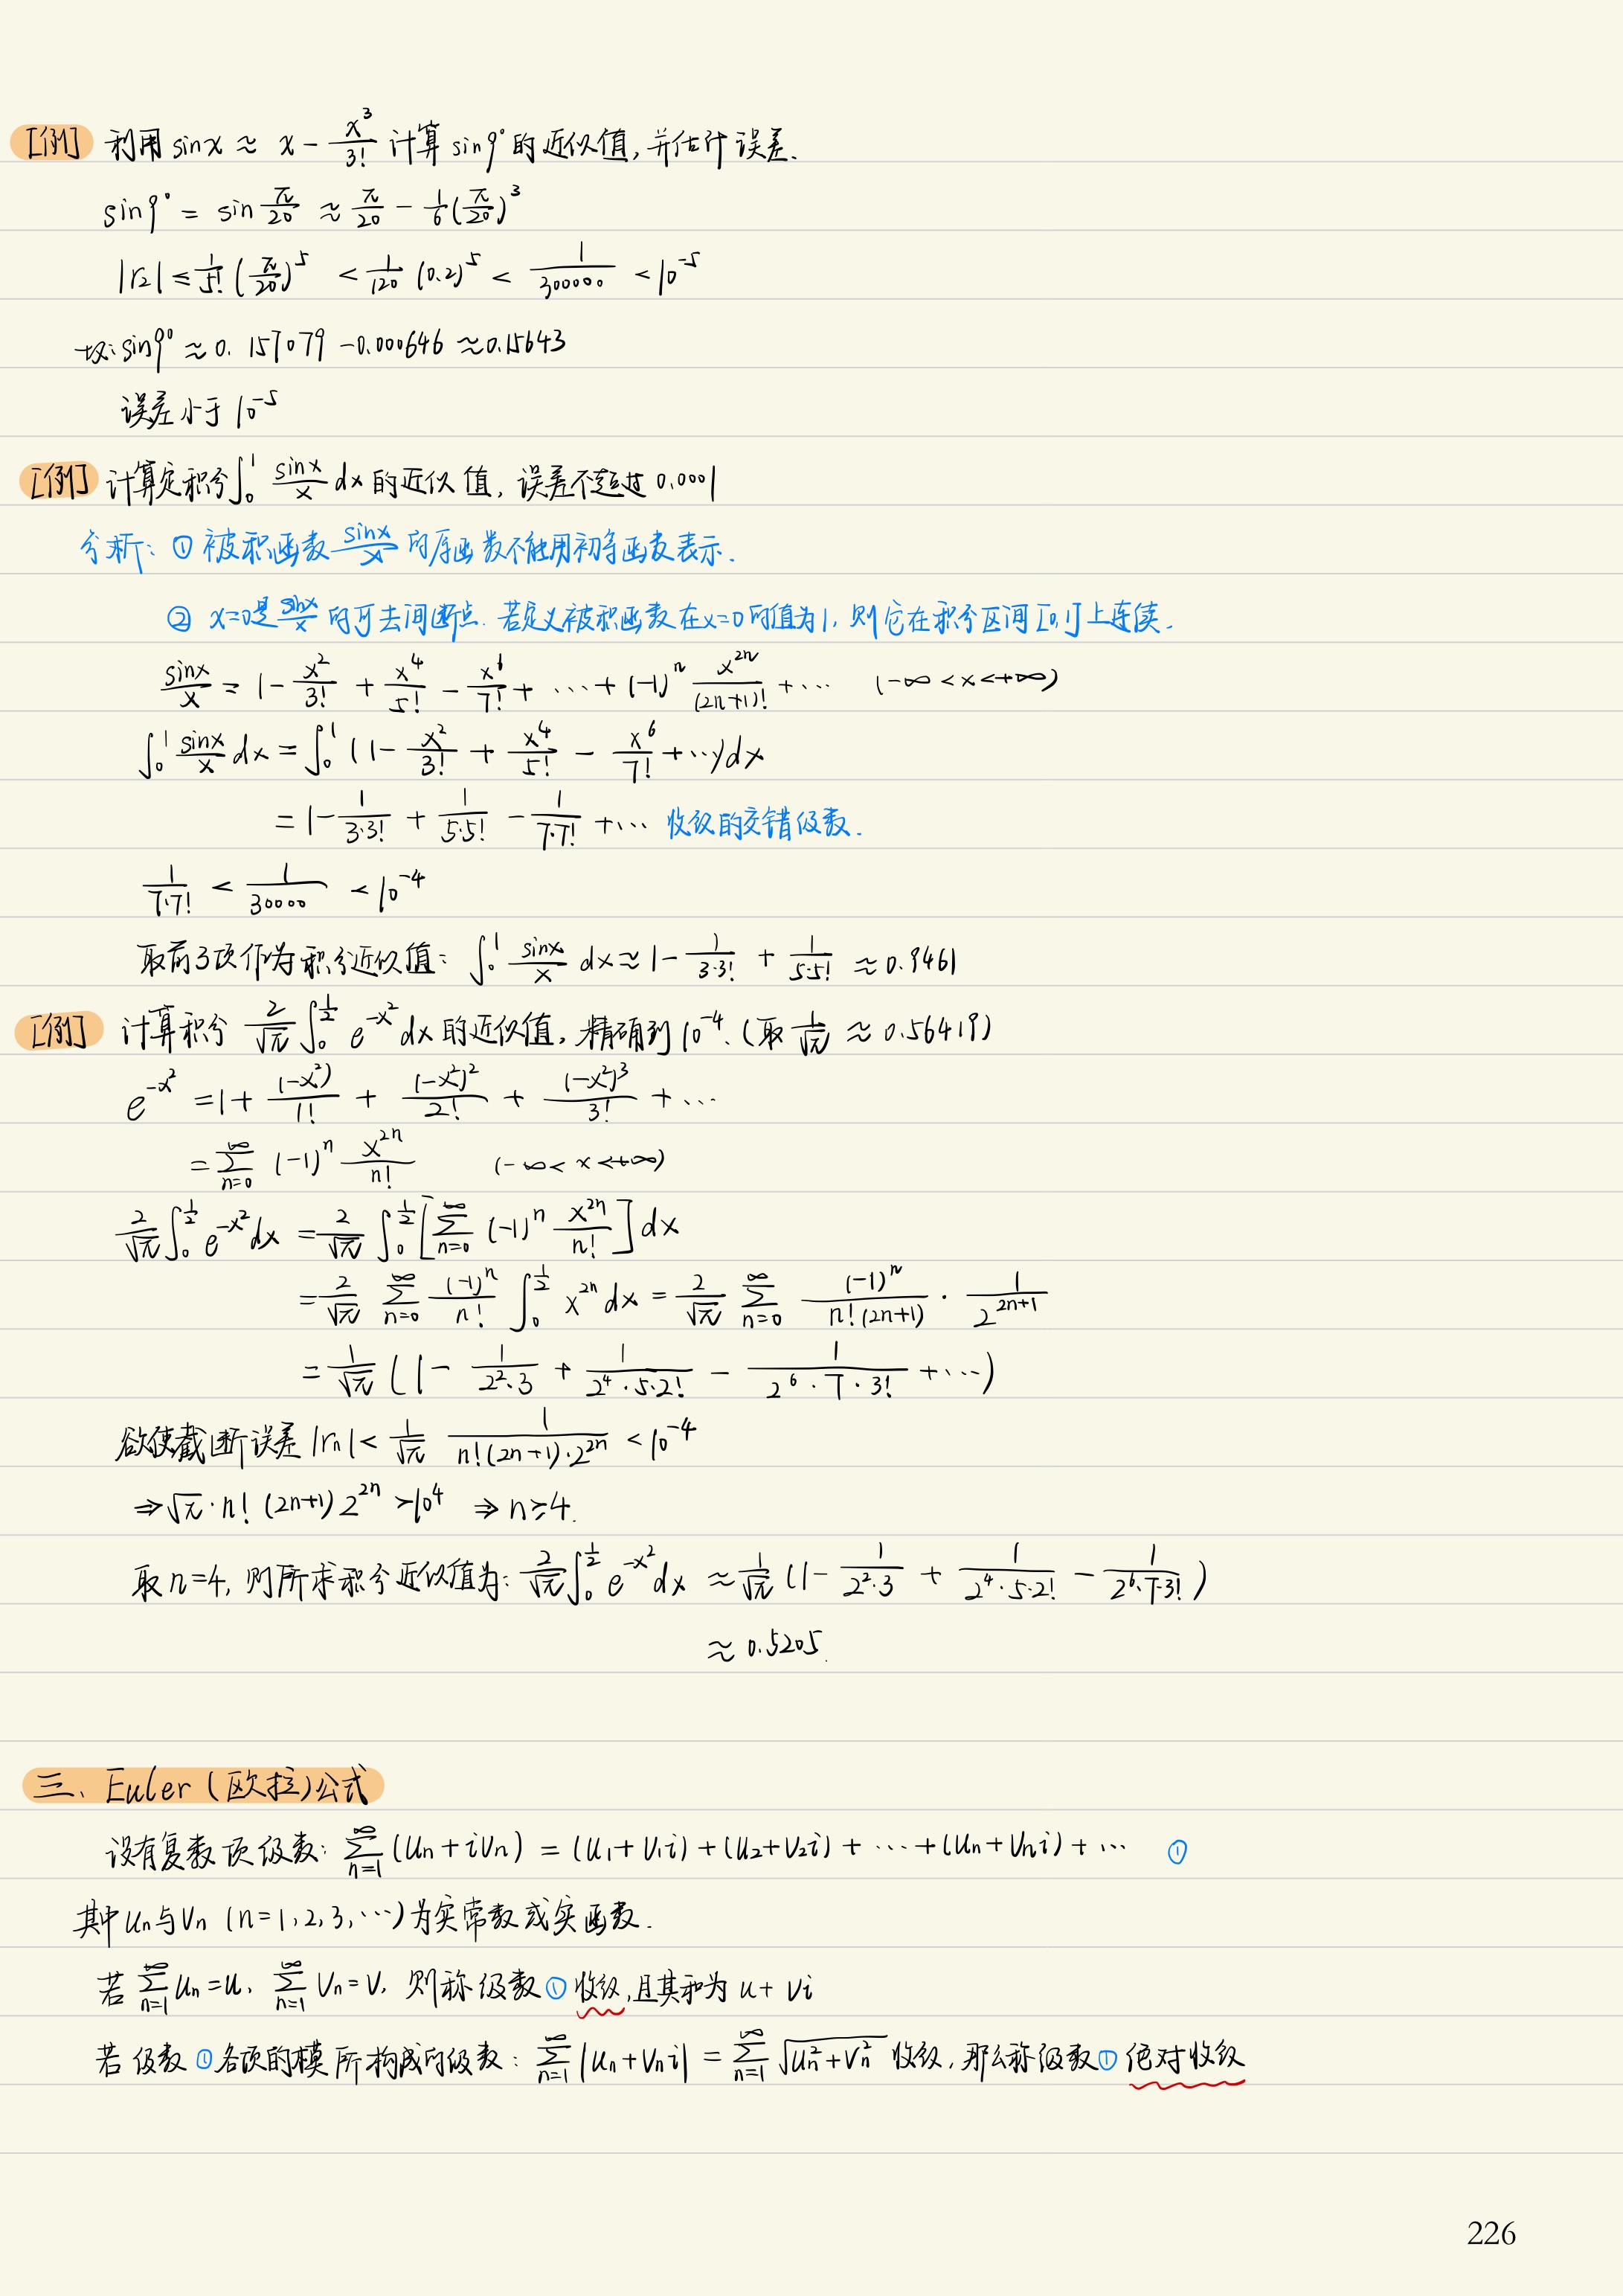 [例] 利用 sinx ≈ x - x³/3! 计算 sin9°的近似值,并估计误差.
sin9° = sin π/20 ≈ π/20 - 1/6(π/20)³
|r₂| ≤ 1/5! (π/20)⁵ < 1/120 (0.2)⁵ < 1/300000 < 10⁻⁵
故: sin9° ≈ 0.157079 - 0.000646 ≈ 0.15643
误差小于 10⁻⁵
[例] 计算定积分∫₀¹ sinx/x dx 的近似值, 误差不超过 0.0001
分析: ① 被积函数 sinx/x 的原函数不能用初等函数表示.
② x=0是 sinx/x 的可去间断点. 若定义被积函数在x=0的值为1, 则它在积分区间[0,1]上连续.
sinx/x = 1 - x²/3! + x⁴/5! - x⁶/7! + ⋯ + (-1)ⁿ x²ⁿ/(2n+1)! + ⋯ (-∞ < x < +∞)
∫₀¹ sinx/x dx = ∫₀¹ (1 - x²/3! + x⁴/5! - x⁶/7! + ⋯) dx
= 1 - 1/(3·3!) + 1/(5·5!) - 1/(7·7!) + ⋯ 收敛的交错级数.
1/(7·7!) < 1/30000 < 10⁻⁴
取前3项作为积分近似值: ∫₀¹ sinx/x dx ≈ 1 - 1/(3·3!) + 1/(5·5!) ≈ 0.9461
[例] 计算积分 2/√π ∫₀^(1/2) e^(-x²) dx 的近似值, 精确到 10⁻⁴. (取 1/√π ≈ 0.56419)
e^(-x²) = 1 + (-x²)/1! + (-x²)²/2! + (-x²)³/3! + ⋯
= ∑_(n=0)^∞ (-1)ⁿ x²ⁿ/n! (-∞ < x < +∞)
2/√π ∫₀^(1/2) e^(-x²) dx = 2/√π ∫₀^(1/2) [∑_(n=0)^∞ (-1)ⁿ x²ⁿ/n!] dx
= 2/√π ∑_(n=0)^∞ (-1)ⁿ/n! ∫₀^(1/2) x²ⁿ dx = 2/√π ∑_(n=0)^∞ (-1)ⁿ/(n!(2n+1)) · 1/2²ⁿ⁺¹
= 1/√π (1 - 1/(2²·3) + 1/(2⁴·5·2!) - 1/(2⁶·7·3!) + ⋯)
欲使截断误差 |rₙ| < 1/√π 1/(n!(2n+1)·2²ⁿ) < 10⁻⁴
⇒ √π·n!(2n+1)2²ⁿ > 10⁴ ⇒ n ≥ 4.
取 n=4, 则所求积分近似值为: 2/√π ∫₀^(1/2) e^(-x²) dx ≈ 1/√π (1 - 1/(2²·3) + 1/(2⁴·5·2!) - 1/(2⁶·7·3!))
≈ 0.5205.
三、Euler (欧拉)公式
设有复数项级数: ∑_(n=1)^∞ (uₙ+ivₙ) = (u₁+v₁i)+(u₂+v₂i)+⋯+(uₙ+vₙi)+⋯ ①
其中 uₙ与vₙ (n=1,2,3,⋯)为实常数或实函数.
若 ∑_(n=1)^∞ uₙ=u, ∑_(n=1)^∞ vₙ=v, 则称级数①收敛,且其和为 u+vi
若级数①各项的模所构成的级数: ∑_(n=1)^∞ |uₙ+vₙi| = ∑_(n=1)^∞ √(uₙ²+vₙ²) 收敛, 那么称级数①绝对收敛
226